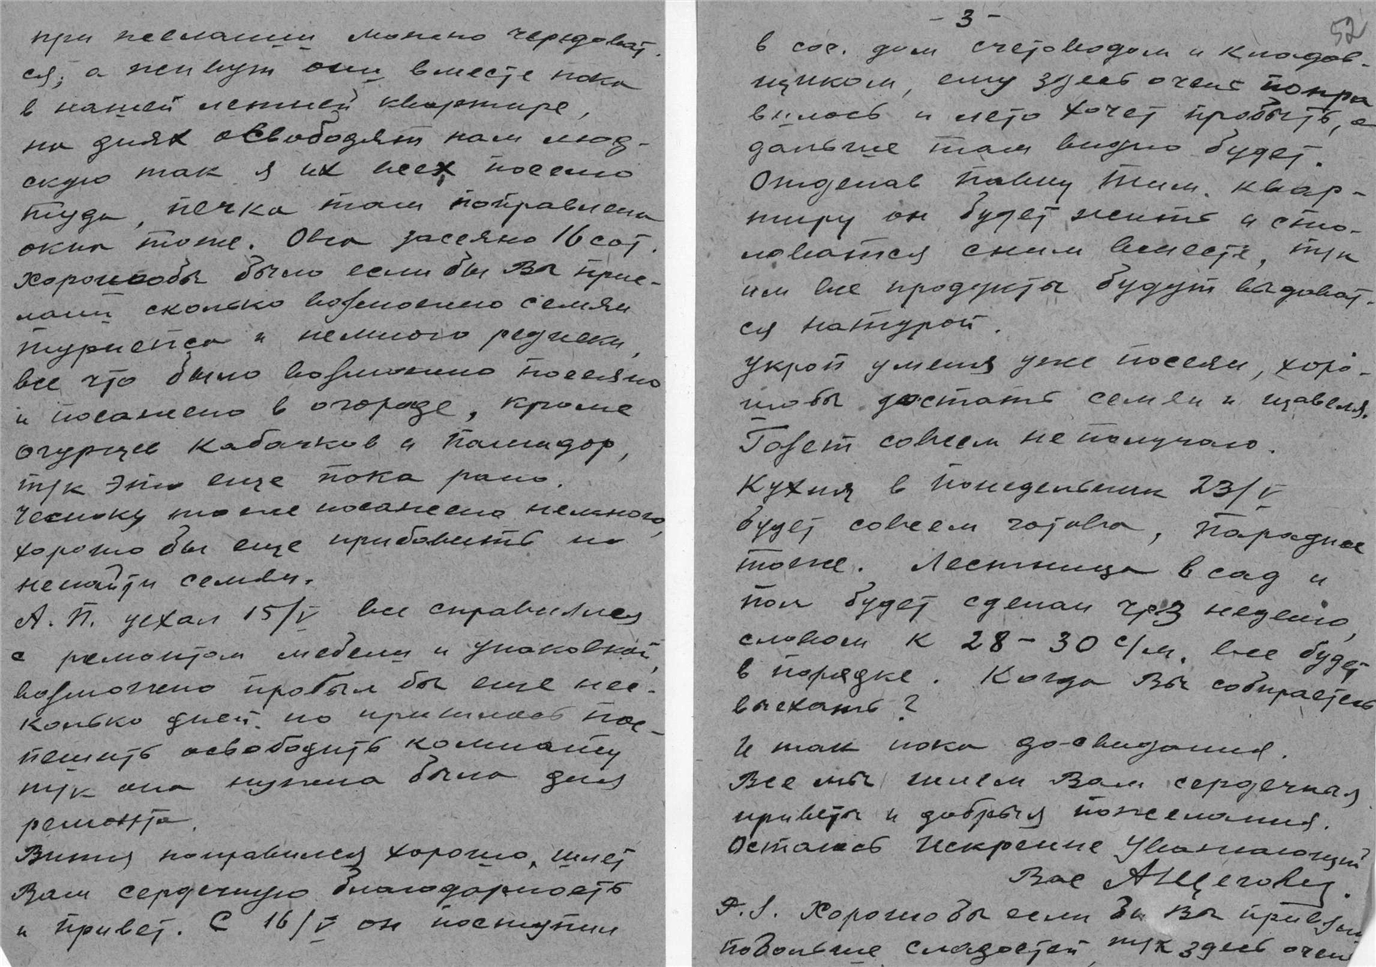 при желании можно чередоват.
ся, а живут они вместе пока
в нашей летней квартире,
на днях освободят нам люд-
скую так я их всех поселю
туда, печка там поправлена
окна тоже. Овса засеяно 16 сот.
Хорошобы было если бы Вы прис-
лали сколько возможно семян
турнепса и немного редиски,
все что было возможно посеяно
и посажено в огороде, кроме
огурцев кабачков и памидор,
т/к это еще пока рано.
Чесноку тоже посажено немного,
хорошо бы еще прибавить но
ненайти семян.
А. П. уехал 15/V все справился
с ремонтом мебели и упаковкой,
возможно пробыл бы еще нес-
колько дней но пришлось пос-
пешить освободить комнату
т/к она нужна была для
ремонта.
Витя поправился хорошо, шлет
Вам сердечную благодарность
и привет. С 16/V он поступил
- 3 -
52
в сог. дом счетоводом и кладов-
щиком, ему здесь очень понра
вилось и лето хочет пробыть, а
дальше там видно будет.
Отделав Павлу Тим. квар-
тиру он будет жить и сто-
ловатся сним вместе, т/к
им все продукты будут выдоват-
ся натурой.
Укроп уменя уже посеян, хоро-
шобы достать семян и щавеля.
Газет совсем не получаю.
Кухня в понедельник 23/V
будет совсем готова, парадное
тоже. Лестница в сад и
пол будет сделан чрз неделю,
словом к 28-30 с/м. все будет
в порядке. Когда Вы собираетесь
выехать?
И так пока до-свидания.
Все мы шлем Вам сердечныя
приветы и добрыя пожелания.
Остаюсь Искренне Уважающий
Вас А Щеговц.
P. S. Хорошобы если бы Вы привезли
побольше сладостей, т/к здесь очень